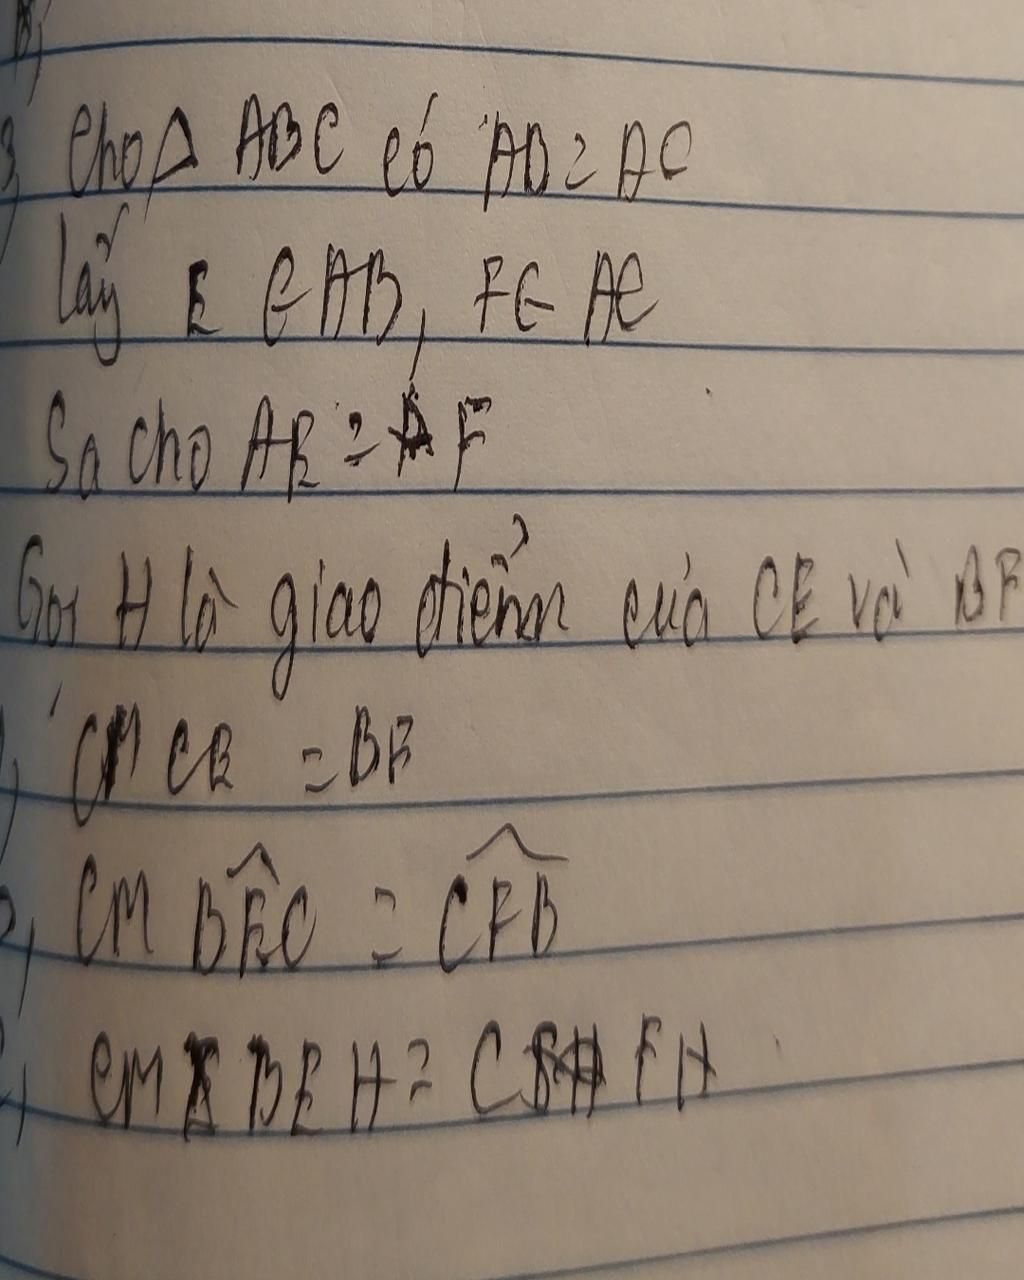 3, Cho Δ ABC có AB = AC
lấy E ∈ AB, F ∈ AC
Sa cho AE = AF
Gọi H là giao điểm của CE và BF
CM CE = BF
CM BÊC = CFB
CM BEH = C FH